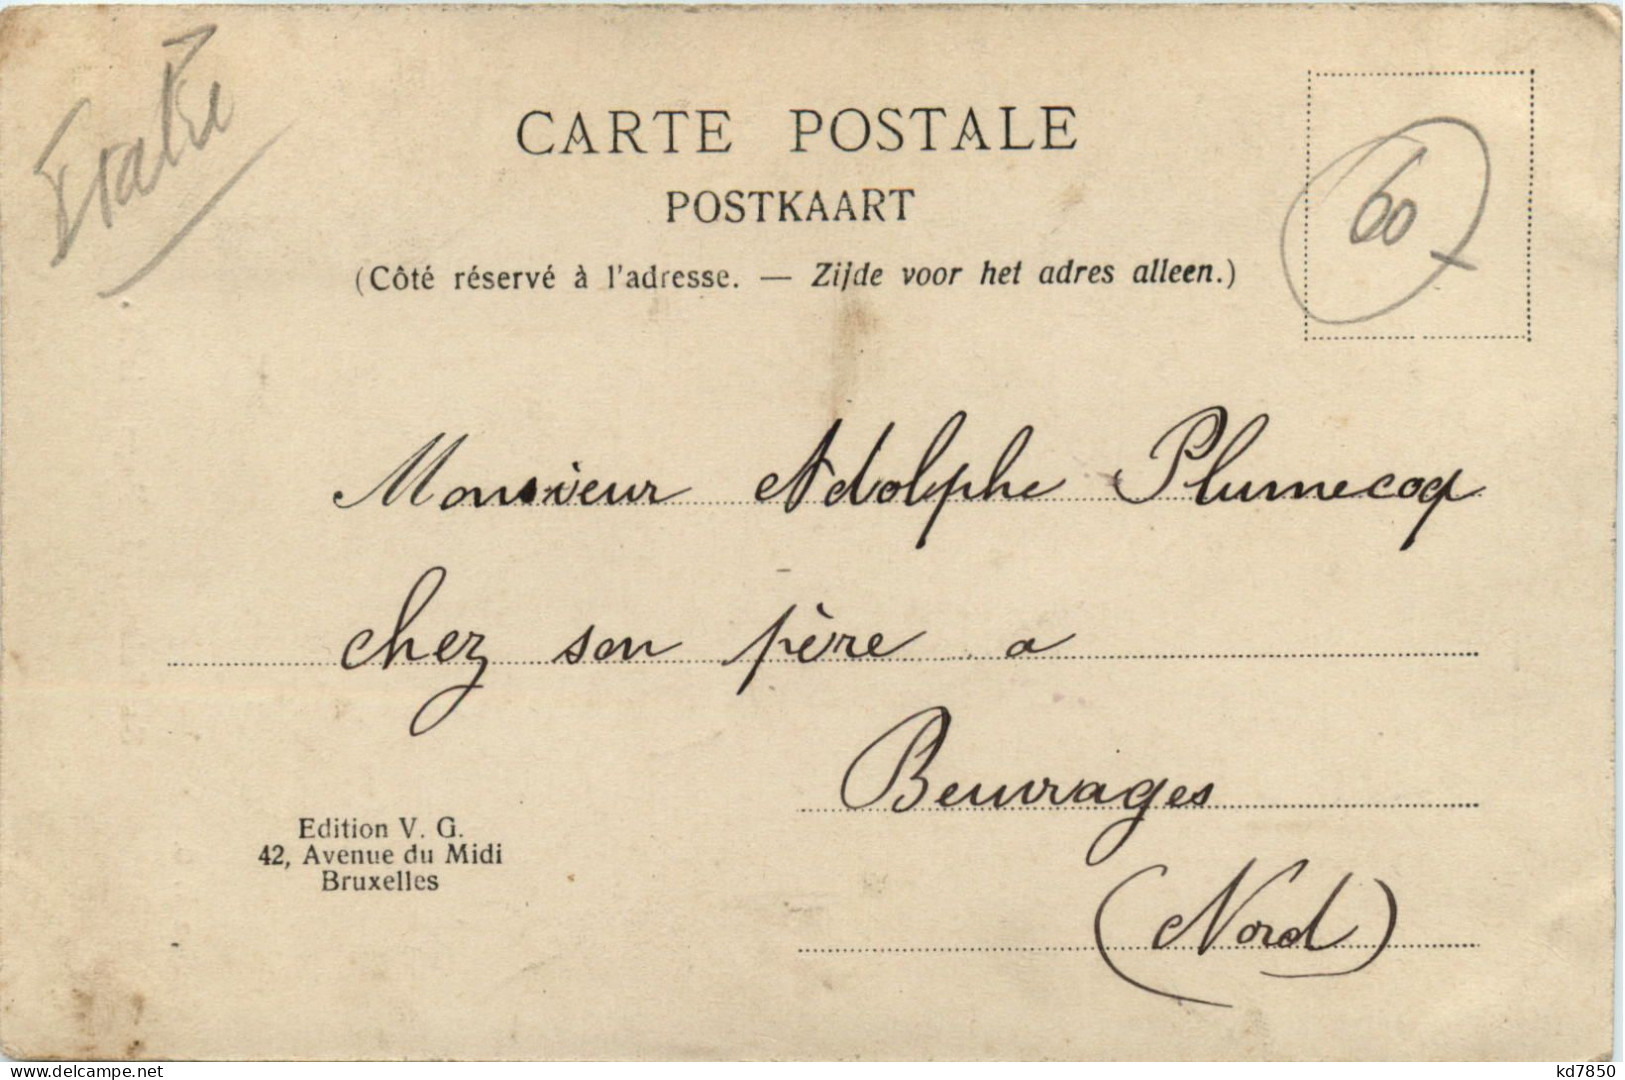 CARTE POSTALE
POSTKAART
(Côté réservé à l'adresse. — Zijde voor het adres alleen.)
60
Monsieur Adolphe Plumecoq
chez son père a
Beuvrages
(Nord)
Edition V. G.
42, Avenue du Midi
Bruxelles
kd7850